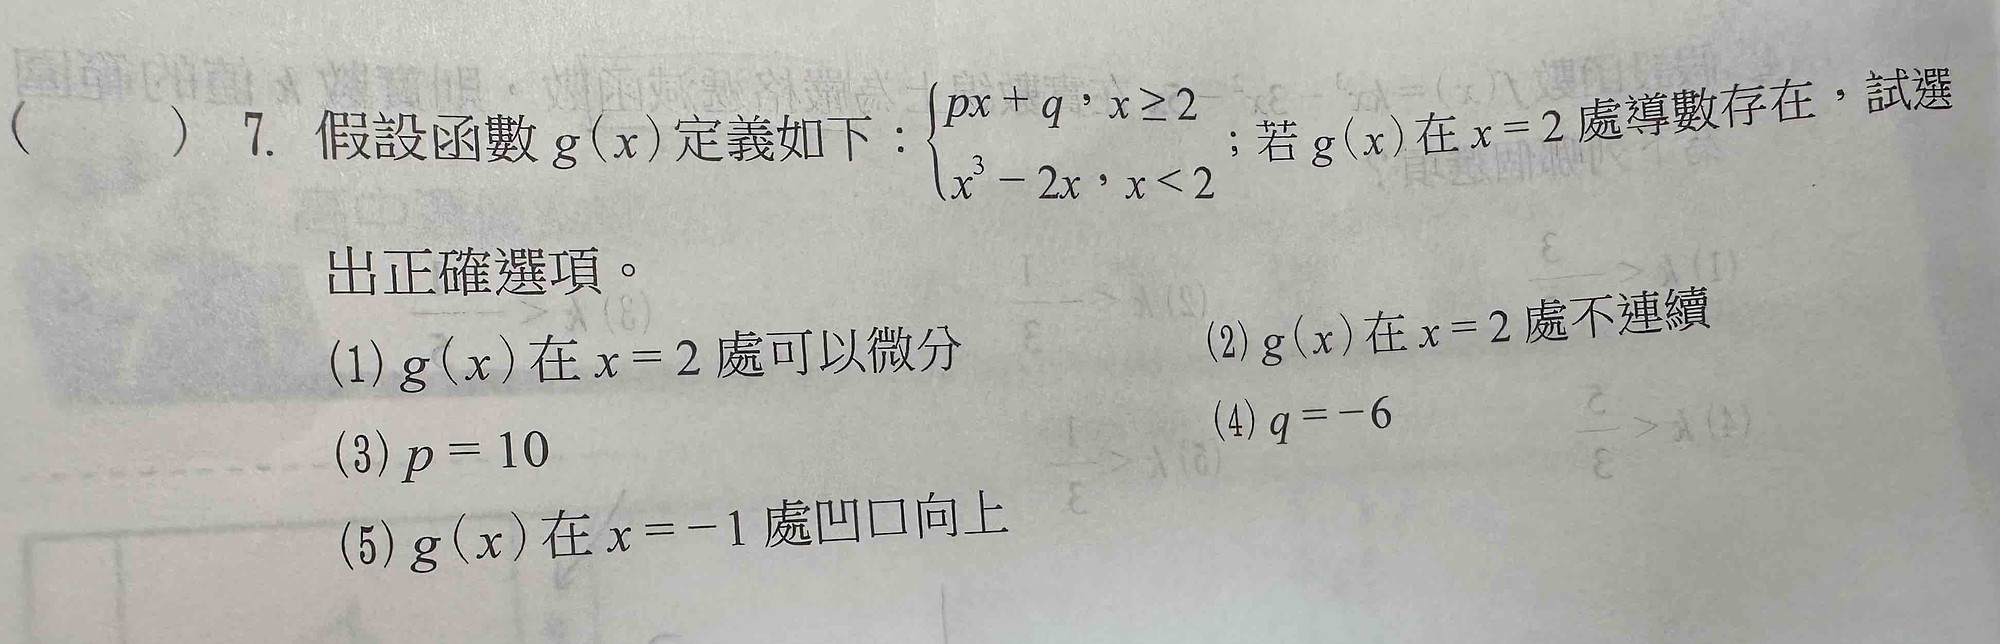 ( ) 7. 假設函數 g(x) 定義如下：{px + q，x ≥ 2
x³ − 2x，x < 2；若 g(x) 在 x = 2 處導數存在，試選
出正確選項。
(1) g(x) 在 x = 2 處可以微分 (2) g(x) 在 x = 2 處不連續
(3) p = 10 (4) q = −6
(5) g(x) 在 x = −1 處凹口向上